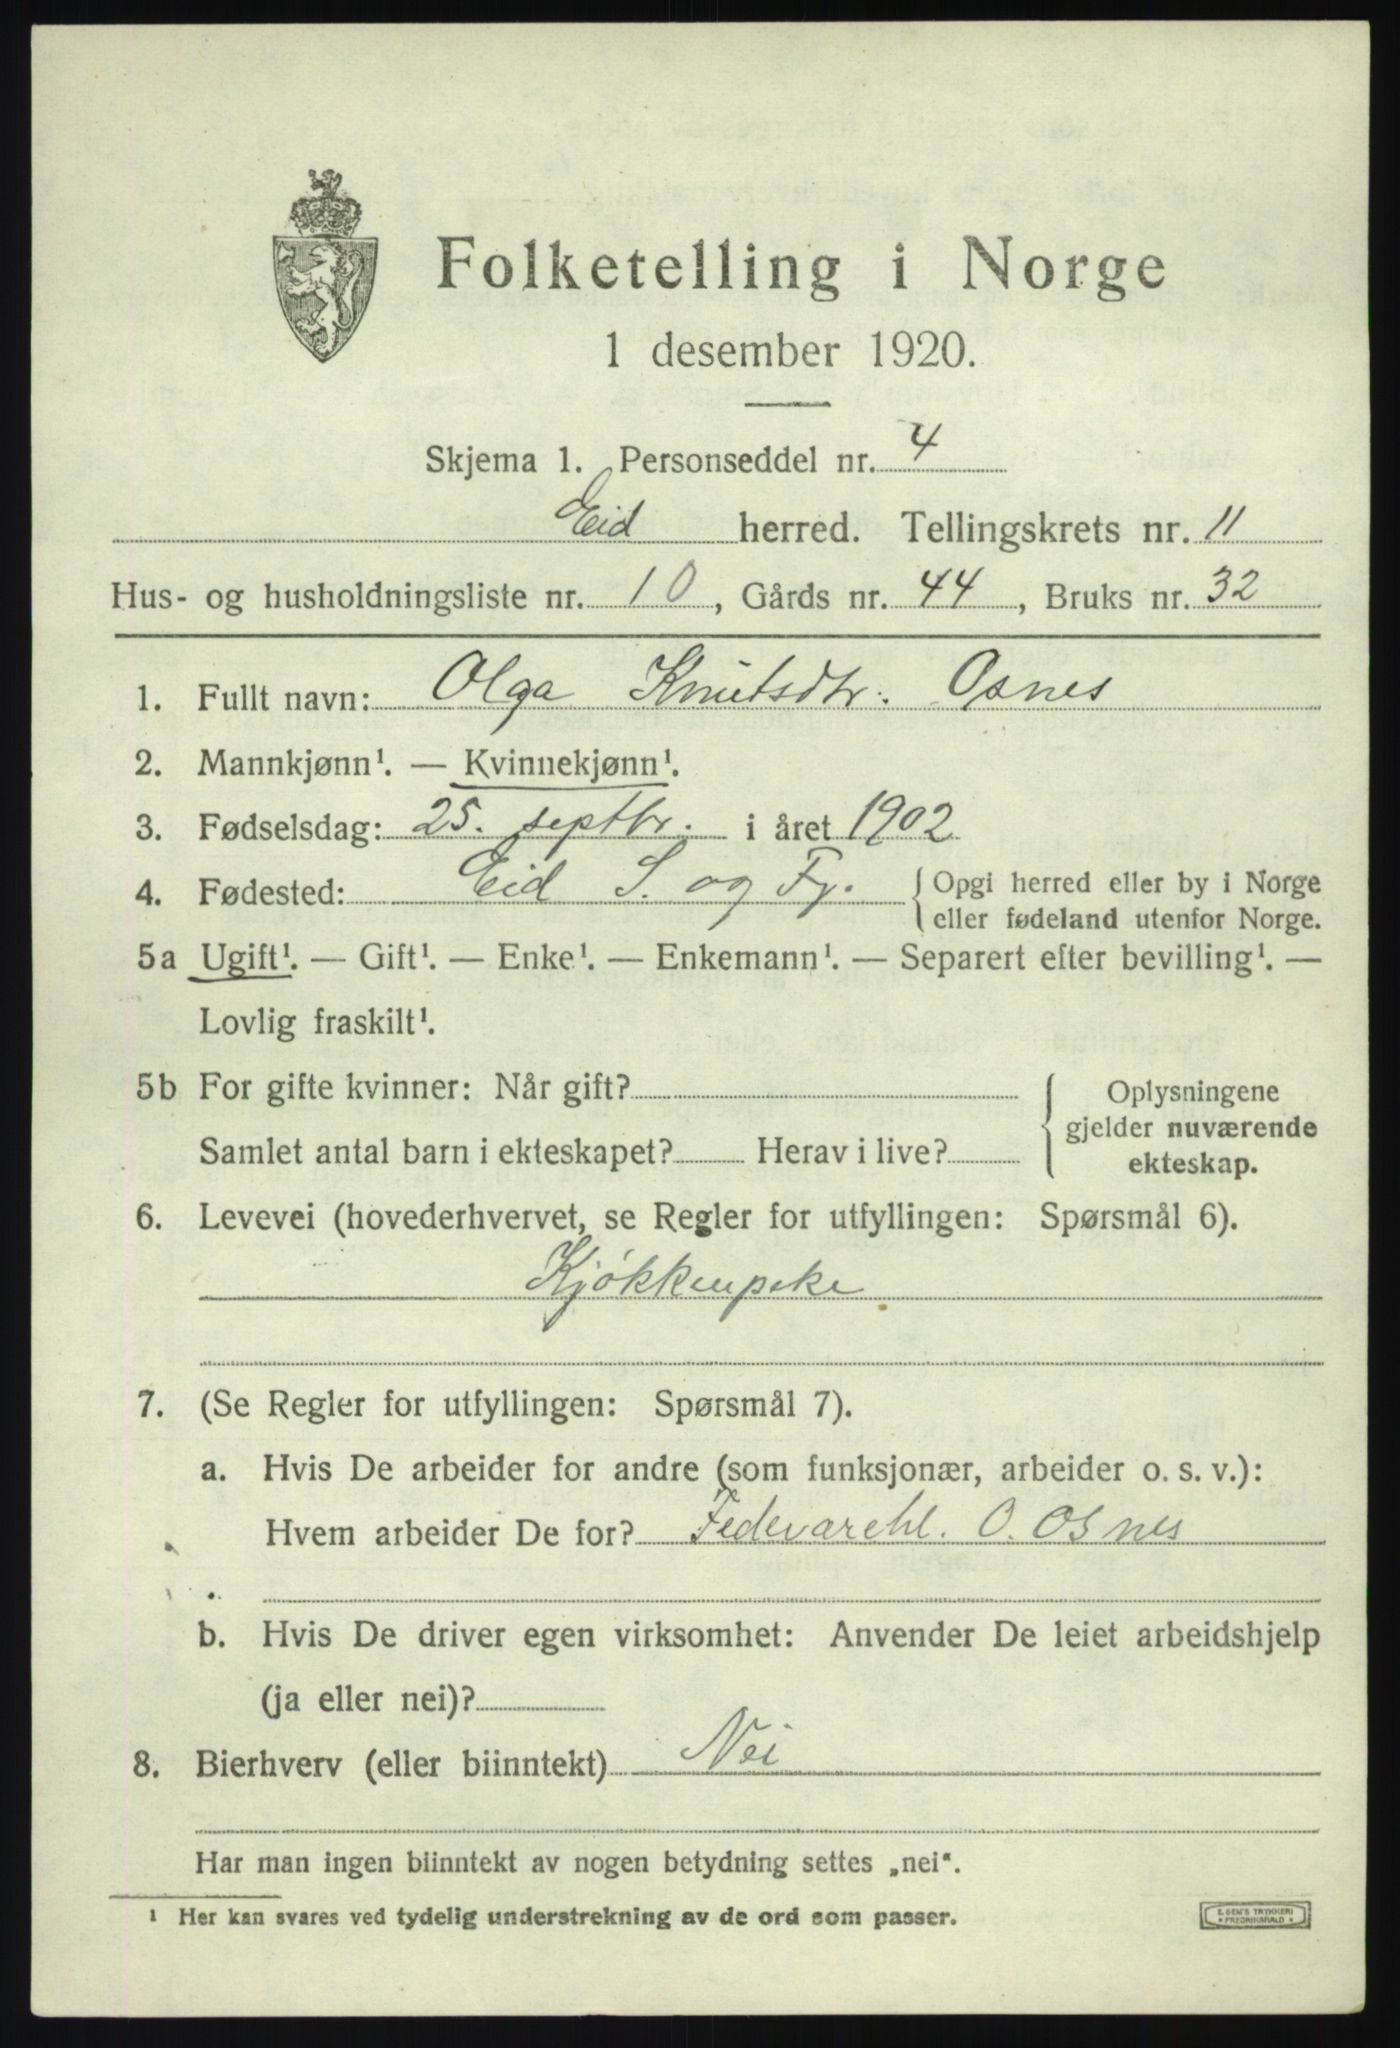 Folketelling i Norge
1 desember 1920.
Skjema 1. Personseddel nr. 4
Eid herred. Tellingskrets nr. 11
Hus- og husholdningsliste nr. 10, Gårds nr. 44, Bruks nr. 32
1. Fullt navn: Olga Knutsdtr. Osnes
2. Mannkjønn¹. — Kvinnekjønn¹.
3. Fødselsdag: 25. septbr. i året 1902
4. Fødested: Eid S. og Fj. { Opgi herred eller by i Norge
eller fødeland utenfor Norge.
5a Ugift¹. — Gift¹. — Enke¹. — Enkemann¹. — Separert efter bevilling¹. —
Lovlig fraskilt¹.
5b For gifte kvinner: Når gift?
Samlet antal barn i ekteskapet? Herav i live?
{ Oplysningene
gjelder nuværende
ekteskap.
6. Levevei (hovederhvervet, se Regler for utfyllingen: Spørsmål 6).
Kjøkkenpike
7. (Se Regler for utfyllingen: Spørsmål 7).
a. Hvis De arbeider for andre (som funksjonær, arbeider o. s. v.):
Hvem arbeider De for? Fedevarehl. O. Osnes
b. Hvis De driver egen virksomhet: Anvender De leiet arbeidshjelp
(ja eller nei)?
8. Bierhverv (eller biinntekt) Nei
Har man ingen biinntekt av nogen betydning settes „nei“.
¹ Her kan svares ved tydelig understrekning av de ord som passer.
E. SEM'S TRYKKERI
• FREDRIKSHALD •